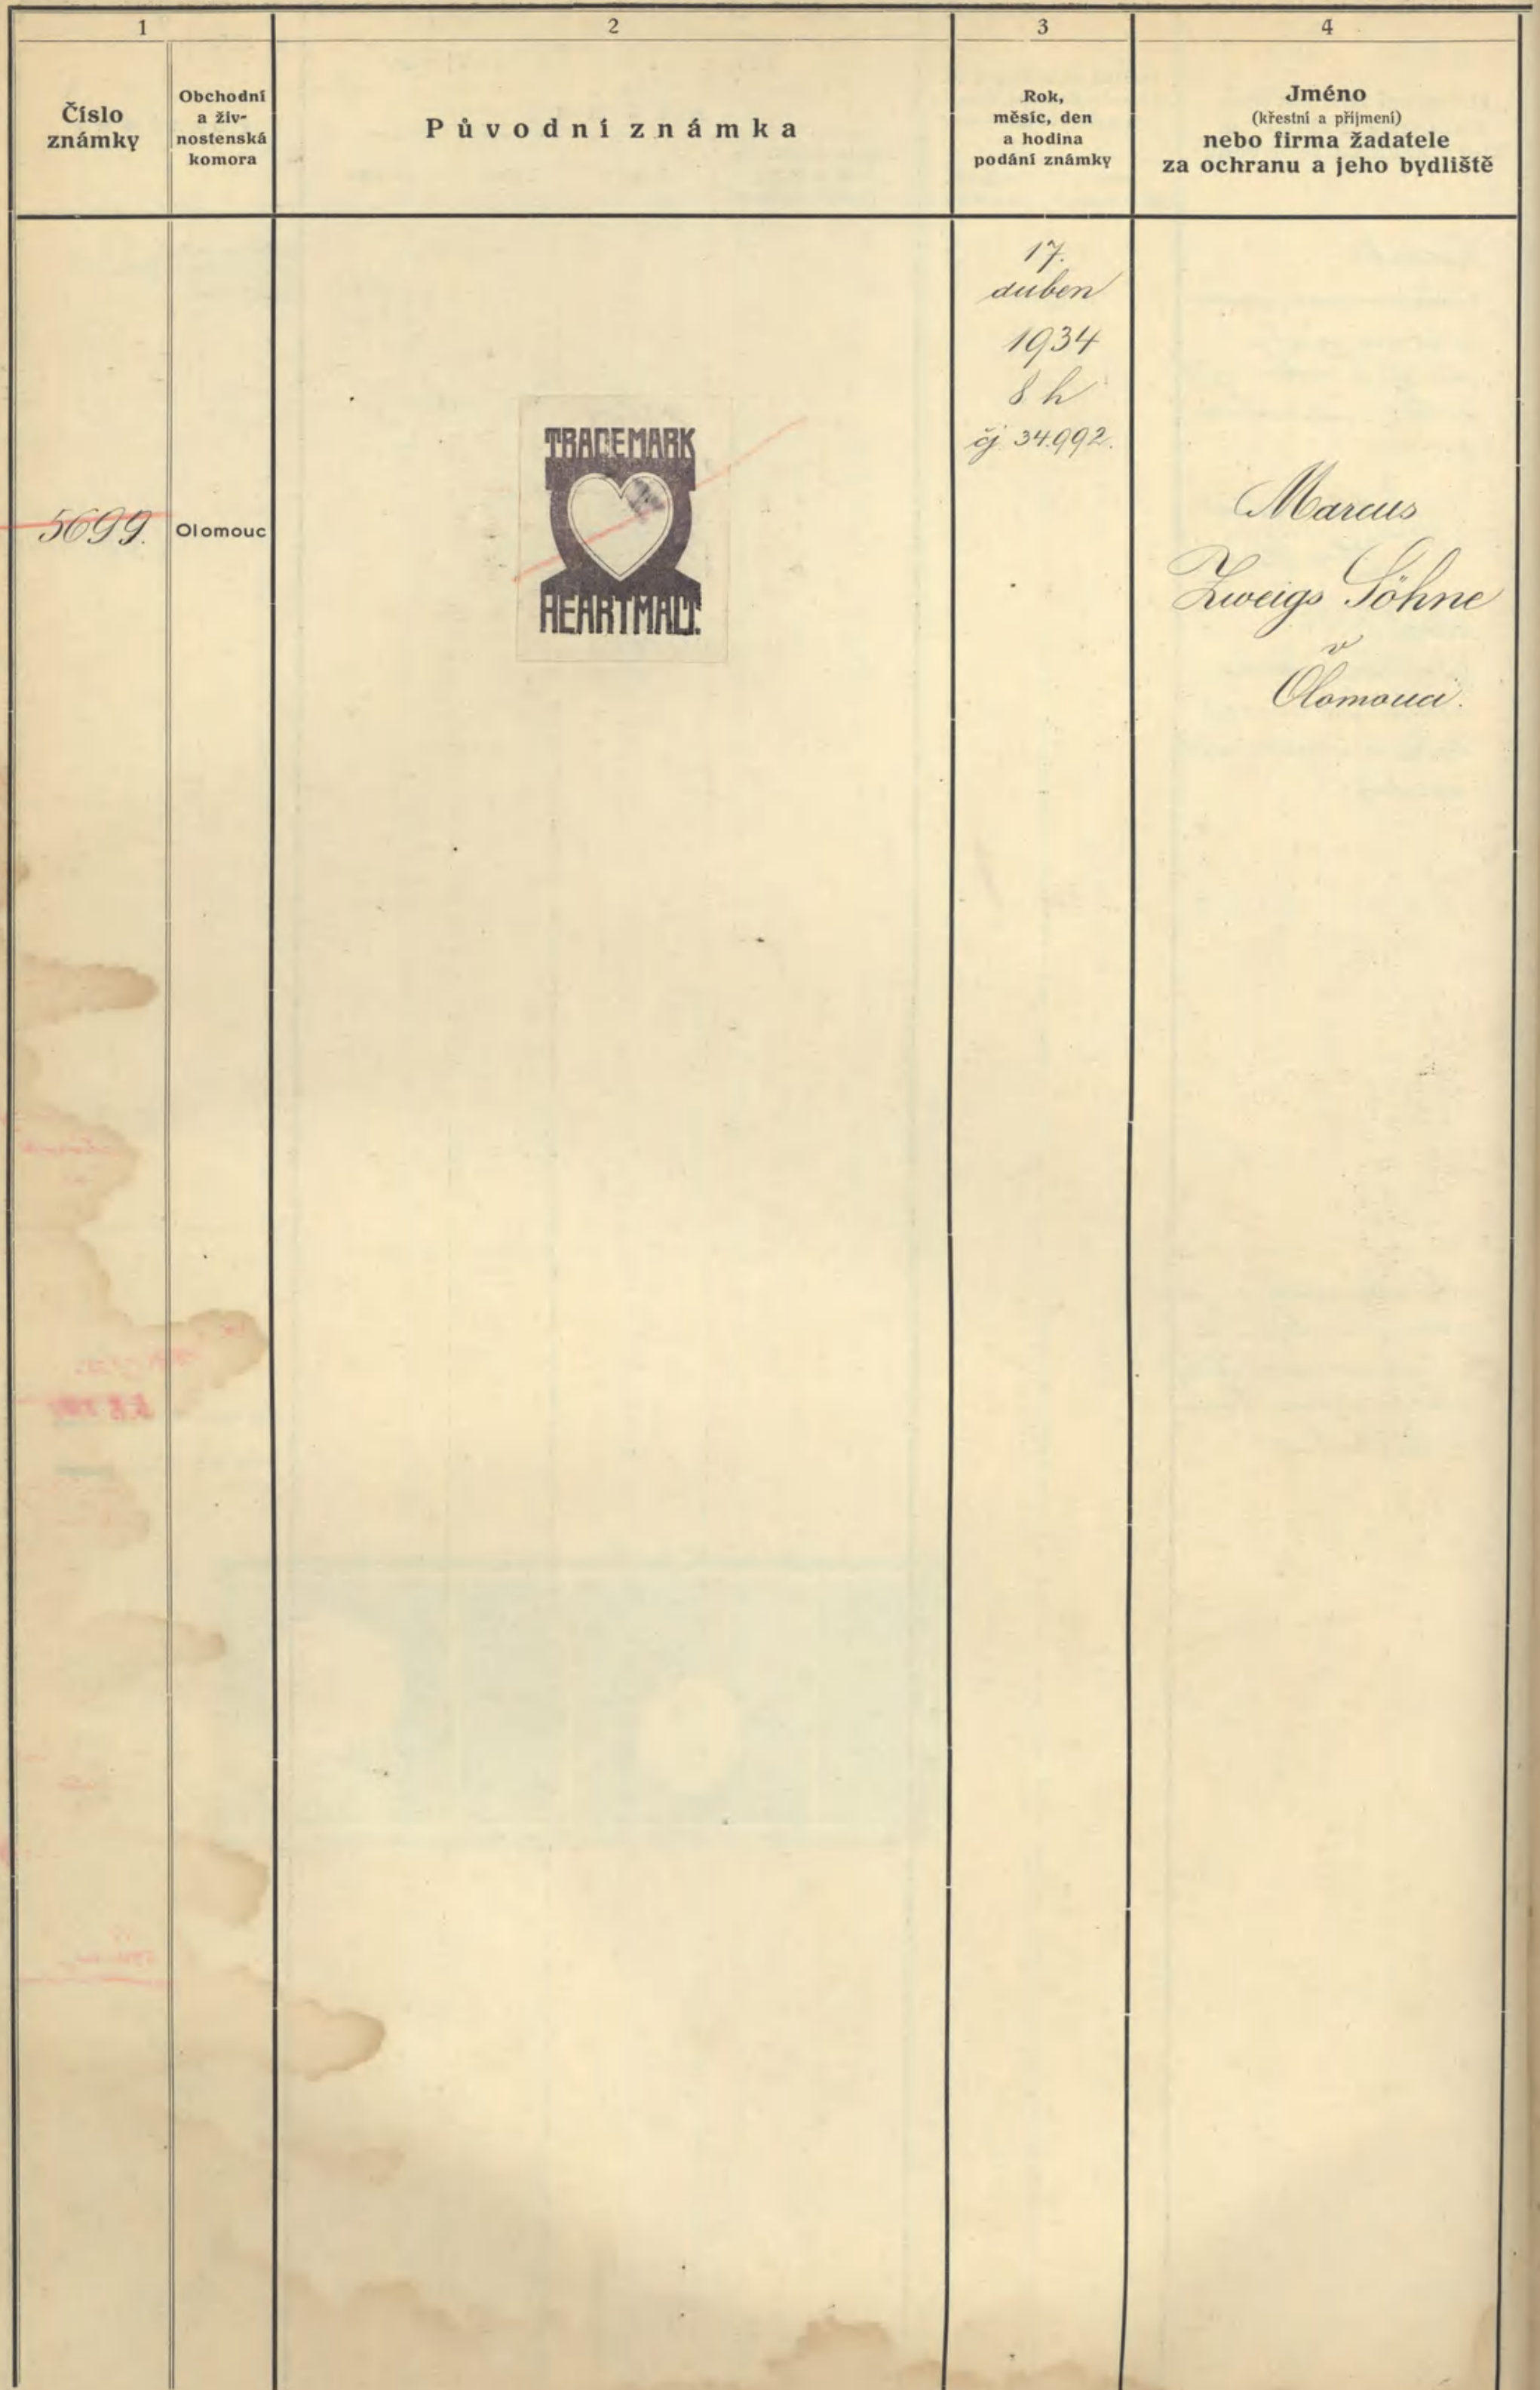 1
2
3
4
Číslo
známky
Obchodní
a živ-
nostenská
komora
Původní známka
Rok,
měsíc, den
a hodina
podání známky
Jméno
(křestní a příjmení)
nebo firma žadatele
za ochranu a jeho bydliště
5699.
Olomouc
TRADEMARK
HEARTMALT.
17.
duben
1934
8 h
čj. 34.992.
Marcus
Zweigs Söhne
v
Olomouci.